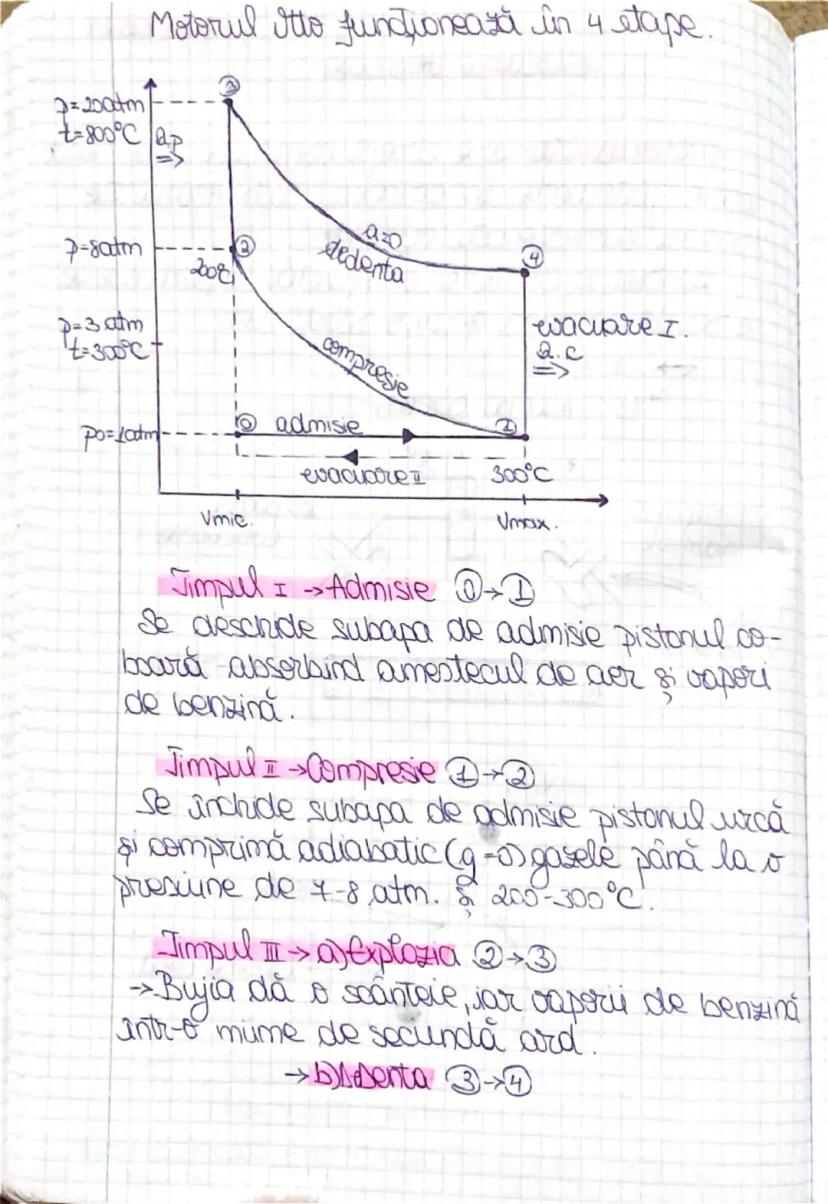 Motorul Otto funcționează în 4 etape.
③
p=20atm
t=800°C
Qp
⇒
a=0
dedenta
④
p=8atm
②
200°C
p=3 atm
t=300°C
compresie
evacuare I.
Q.c
⇒
p0=1atm
⓪ admisie
①
evacuare II
300°C
Vmic.
Vmax.
Timpul I → Admisie ⓪→①
Se deschide subapa de admisie pistonul co-
boară absorbind amestecul de aer și vapori
de benzină.
Timpul II → Compresie ①→②
Se închide subapa de admisie pistonul urcă
și comprimă adiabatic (q=0) gazele până la o
presiune de 7-8 atm. și 200-300°C.
Timpul III → a) Explozia ②→③
→ Bujia dă o scânteie, iar vaporii de benzină
într-o miime de secundă ard.
→ b) Detenta ③→④